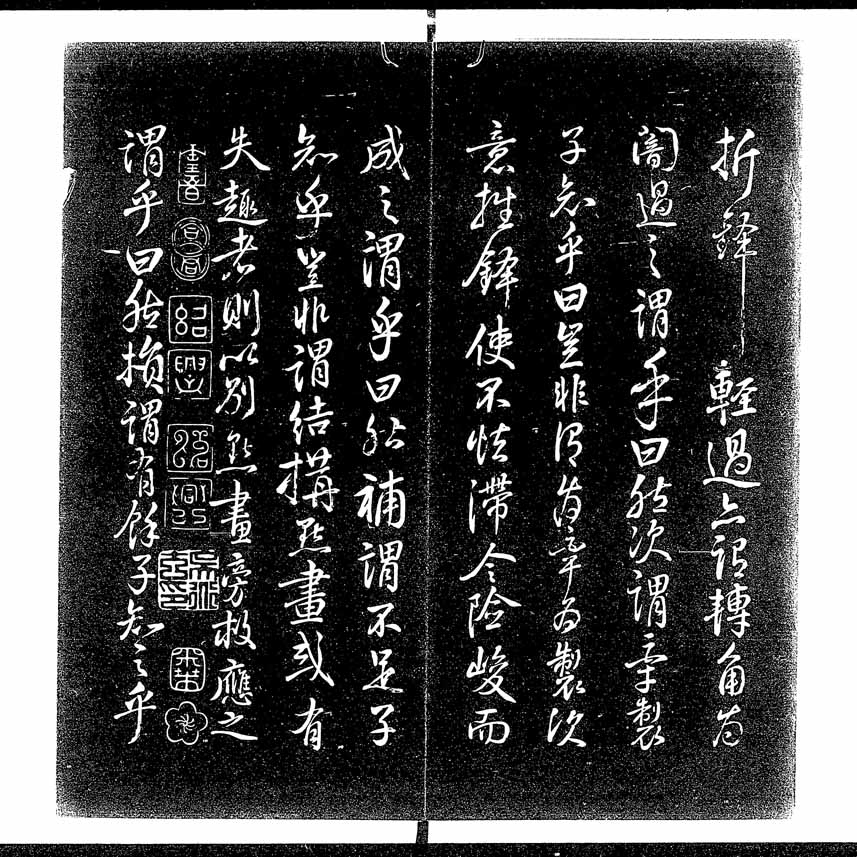 折鋒輕過亦謂轉角為
闇過之謂乎曰然決謂牽製
子知乎曰豈非謂為牽為製決
意挫鋒使不怯滯令險峻而
成之謂乎曰然補謂不足子
知乎豈非謂結構點畫或有
失趣者則以別點畫旁救應之
紹興
紹興
謂乎曰然損謂有餘子知之乎